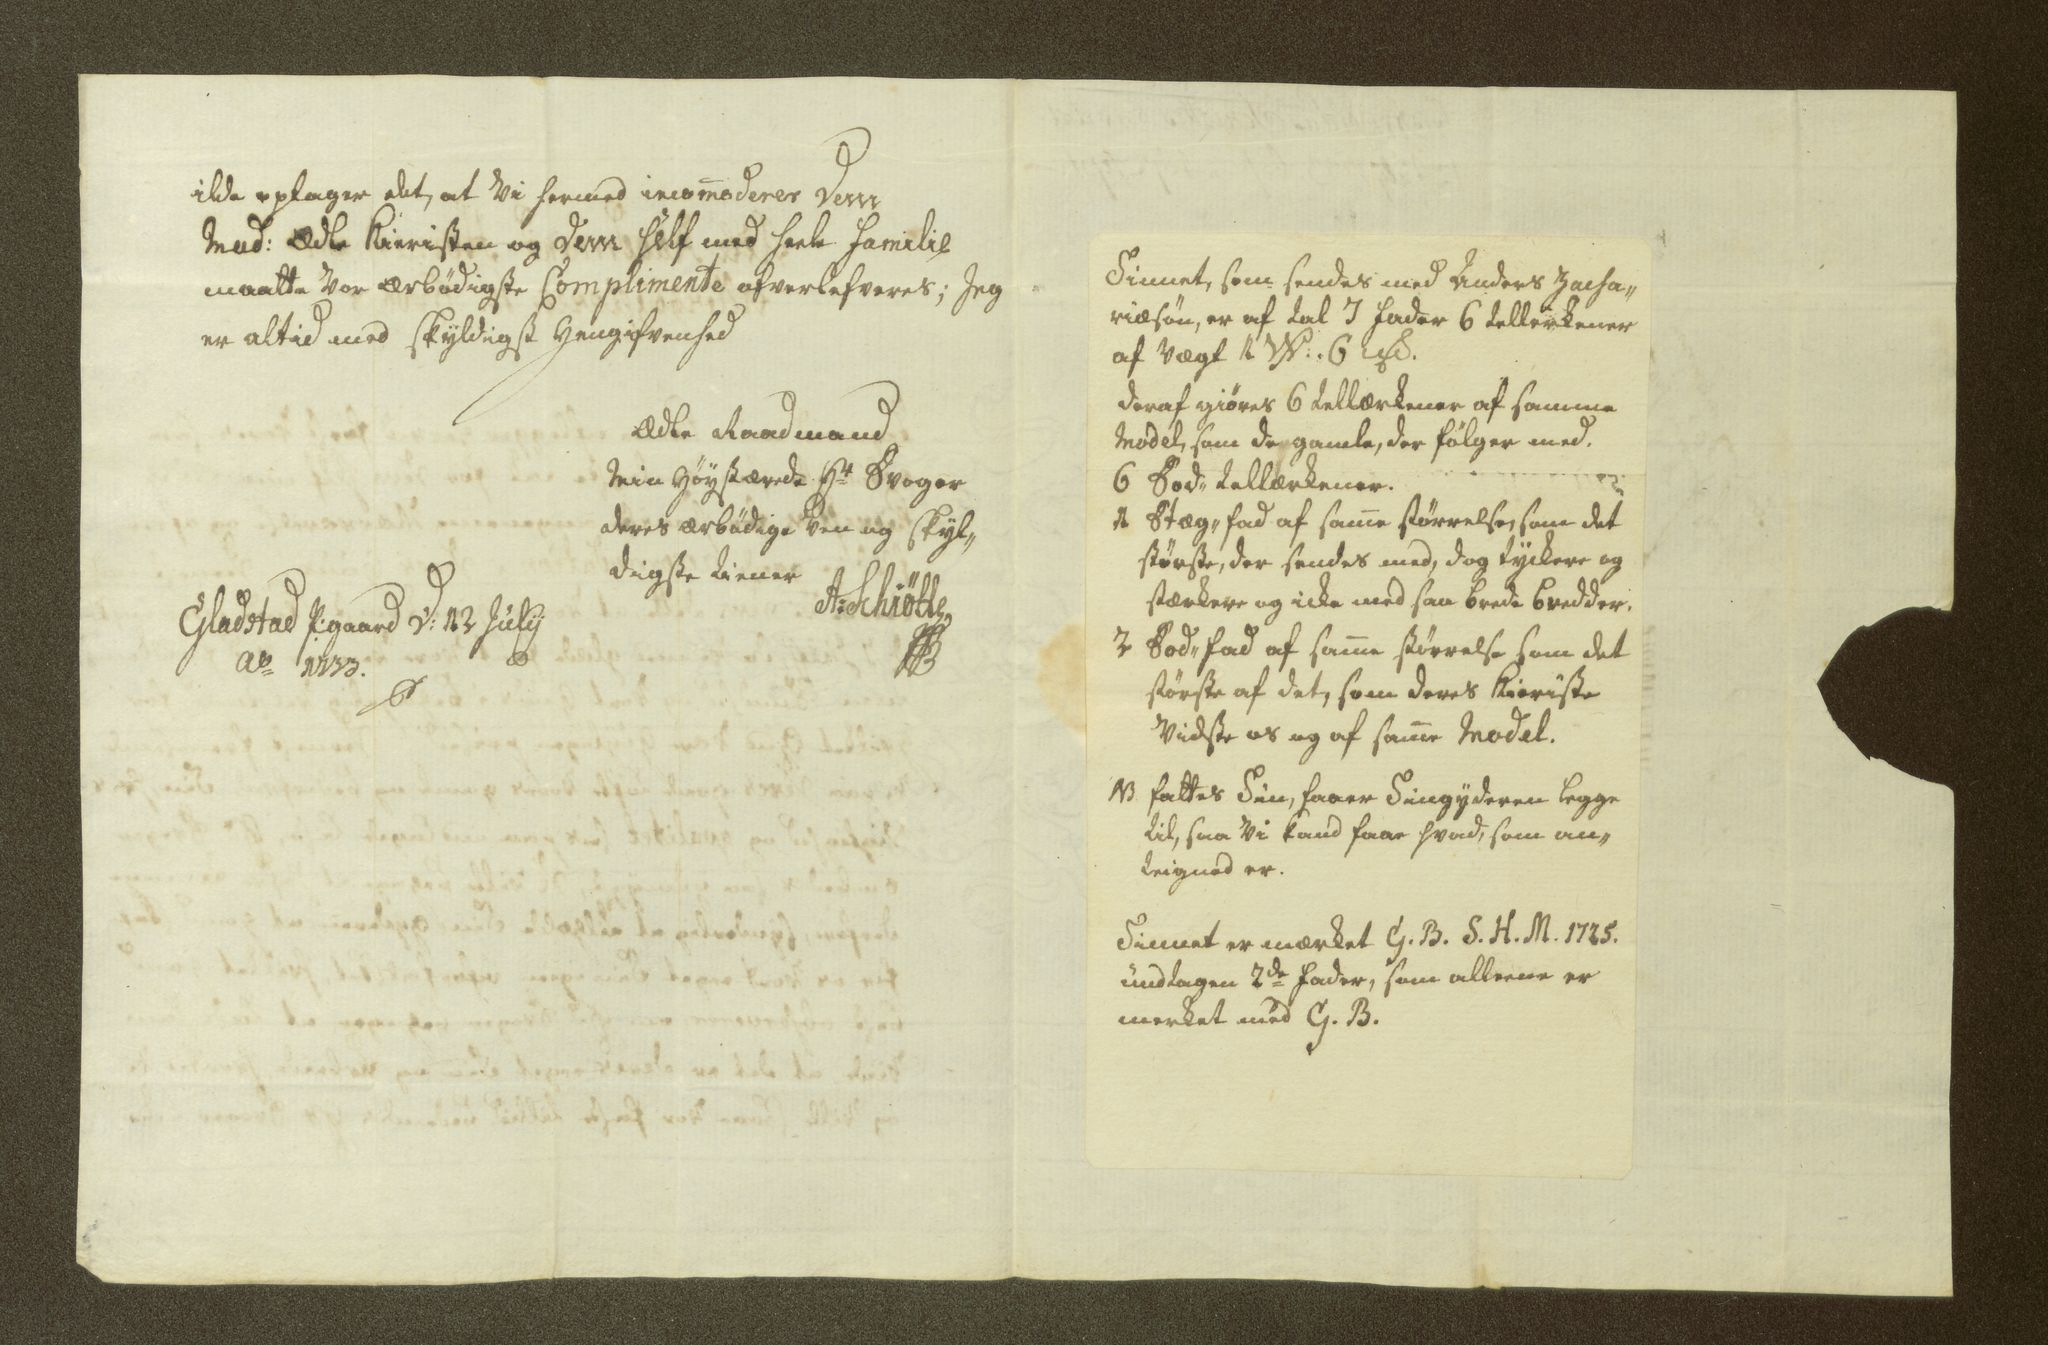 ilde optager det, at Vi hermed incom̄oderer Dem
Mad: Ædle Kieristen og Dem self med heele Familie
maatte Vor ærbödigste Complimente ofverlefveres; Jeg
er altid med skyldigst Hengifvenhed
Ædle Raadmand
Min Höystærede Hr Svoger
deres ærbödige ven og skyl„
digste tiener
A: Schiötte
Gladstad Pgaard D: 12 Julij
Ao 1733.
Tinnet, som sendes med Anders Zacha„
riæsön, er af tal 7 Fader 6 tellerkener
af Vægt
deraf giöres 6 tellærkener af samme
Model, som de gamle, der fölger med.
6 Sod„ tellærkener.
1 Stæg„ fad af sam̄e störrelse, som det
störste, der sendes med, dog tyckere og
stærkere og icke med saa brede bredder.
2 Sod„ fad af sam̄e störrelse som det
störste af det, som deres Kieriste
Vidste os og af sam̄e Model.
NB fattes Tin, faaer Tingyderen legge
til, saa Vi kand faae hvad, som an„
teigned er.
Tinnet er mærket G. B. S. H. M. 1725.
undtagen 2de Fader, som alleene er
merket med G. B.